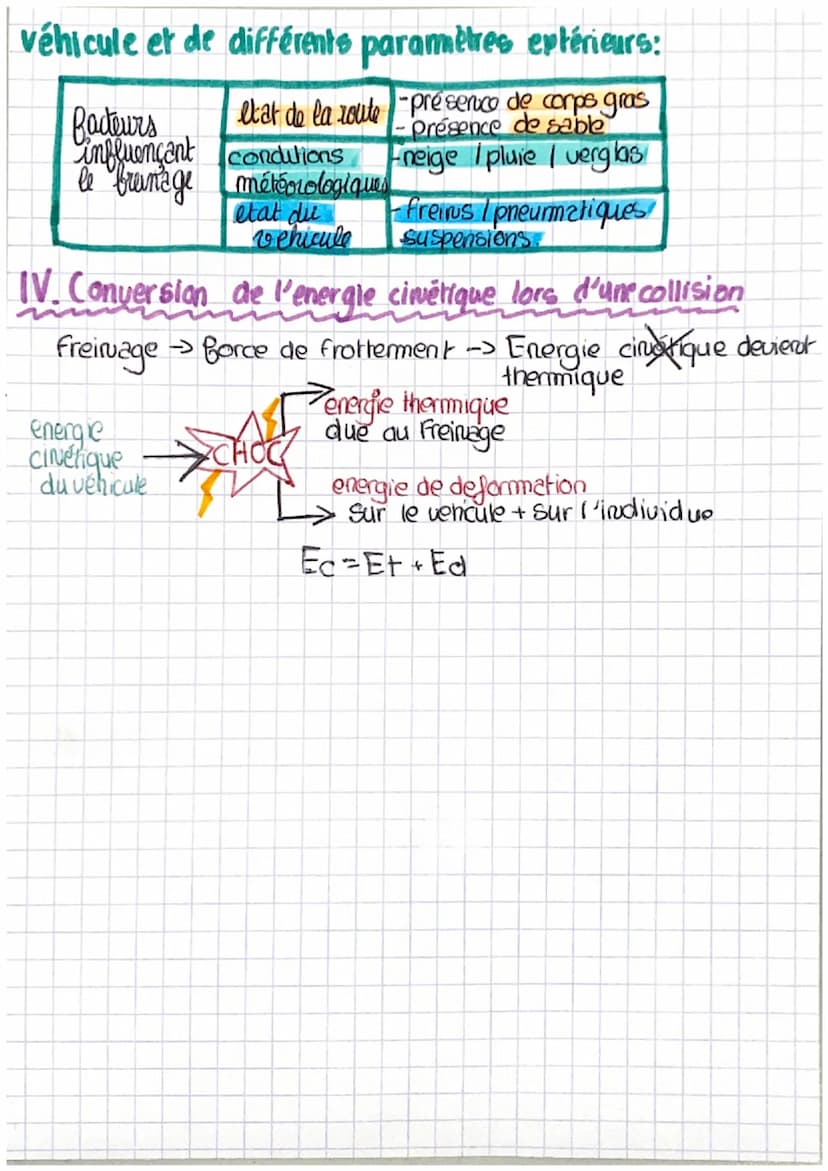 véhicule et de différents paramètres extérieurs:
Facteurs
influençant
le freinage
etat de la route
-présence de corps gras
-présence de sable
conditions
météorologiques
-neige / pluie / verglas
etat du
vehicule
-freins / pneumatiques
suspensions.
IV. Conversion de l'energie cinétique lors d'une collision
Freinage -> Force de frottement -> Energie cinétique devient
thermique
energie thermique
due au Freinage
energie
cinétique
du véhicule
CHOC
energie de deformation
sur le vehicule + sur l'individue
Ec = Et + Ed